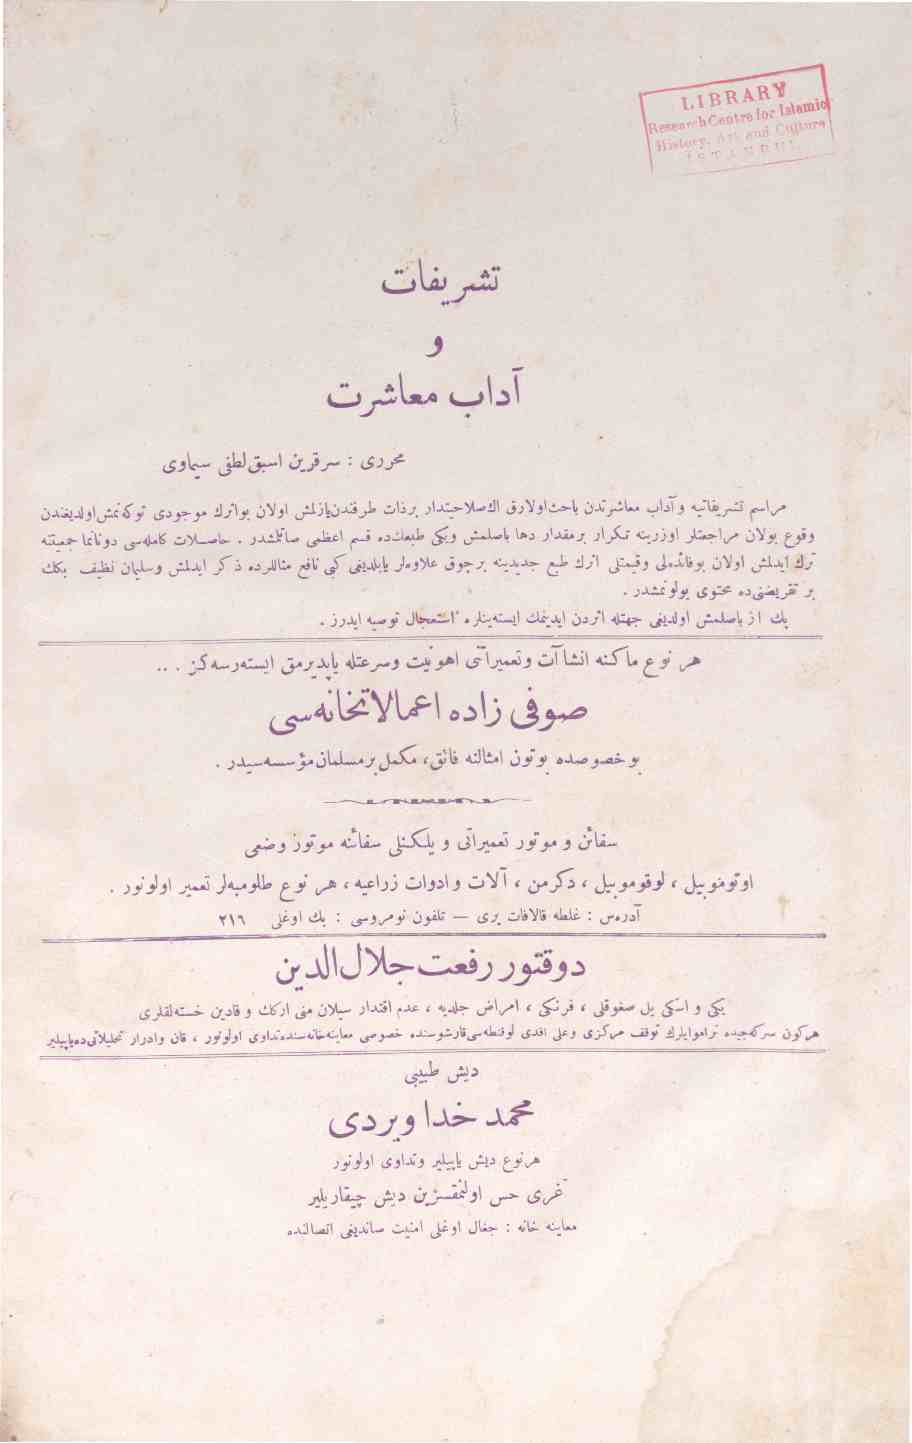 LIBRARY
Research Centre for Islamic
History, Art and Culture
ISTANBUL
تشریفات
و
آداب معاشرت
محرری : سرقرین اسبق لطفی سیماوی
مراسم تشریفاتیه و آداب معاشرتدن باحث اولارق اك صلاحیتدار برذات طرفندن یازلمش اولان بواثرك موجودی توکه‌نمش اولدیغندن
وقوع بولان مراجعتلر اوزرینه تکرار برمقدار دها باصلمش ویکی طبعك‌ده قسم اعظمی صاتلمشدر . حاصلات کامله‌سی دونانما جمعیتنه
ترك ایدلمش اولان بوفائده‌لی وقیمتلی اثرك طبع جدیدینه برچوق علاوه‌لر یاپلدیغی کبی نافع مثاللرده ذکر ایدلمش وسلیمان نظیف بكك
بر تقریضنی‌ده محتوی بولونمشدر .
پك از باصلمش اولدیغی جهتله اثردن ایدینمك ایسته‌ینلره استعجال توصیه ایدرز .
هر نوع ماکنه انشاآت وتعمیراتنی اهونیت وسرعتله یاپدیرمق ایسته‌رسه‌کز . ..
صوفی زاده اعمالاتخانه‌سی
بو خصوصده بوتون امثالنه فائق، مکمل برمسلمان مؤسسه‌سیدر .
سفائن و موتور تعمیراتی و یلکنلی سفائنه موتور وضعی
اوتوموبیل ، لوقوموبیل ، دکرمن ، آلات وادوات زراعیه ، هر نوع طلومبه‌لر تعمیر اولونور .
آدرەس : غلطه قالافات یری — تلفون نومروسی : بك اوغلی ٢١٦
دوقتور رفعت جلال الدین
یکی و اسکی بل صغوقلی ، فرنکی ، امراض جلدیه ، عدم اقتدار سیلان منی ارکك و قادین خسته‌لقلری
هرکون سرکه‌جیده تراموایلرك توقف مرکزی وعلی افندی لوقنطه‌سی قارشوسنده خصوصی معاینه‌خانه‌سنده تداوی اولونور ، قان وادرار تحلیلاتی‌ده یاپیلیر
دیش طبیبی
محمد خدا ویردی
هرنوع دیش یاپیلیر وتداوی اولونور
غری حس اولنمقسزین دیش چیقاریلیر
معاینه خانه : جغال اوغلی امنیت صاندیغی اتصالنده